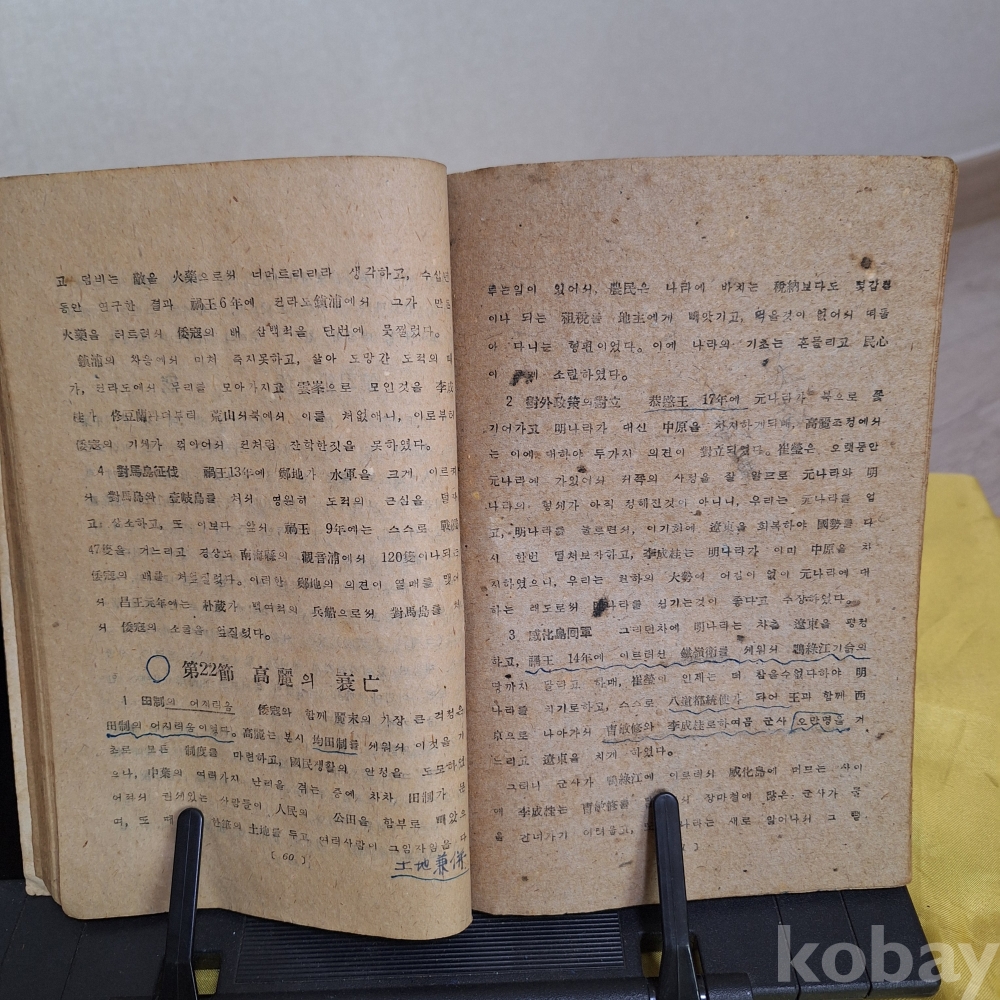 고 덤비는 敵을 火藥으로써 너머트리리라 생각하고, 수십년
동안 연구한 결과 禑王 6年에 전라도 鎭浦에서 그가 만든
火藥을 터트려서 倭寇의 배 삼백척을 단번에 못질렀다.
鎭浦의 차움에서 미처 죽지못하고, 살아 도망간 도적의 떼
가, 전라도에서 무리를 모아가지고 雲峯으로 모인것을 李成
桂가 佟豆蘭 荒山서북에서 이를 쳐없애니, 이로부터
倭寇의 기세가 꺾어여서 전처럼 잔학한짓을 못하였다.
4 對馬島征伐 禑王13年에 鄭地가 水軍을 크게 이르켜
서 對馬島와 壹岐島를 쳐서 영원히 도적의 근심을 덜
고 상소하고, 또 이보다 앞서 禑王 9年에는 스스로 戰艦
47隻을 거느리고 경상도 南海縣의 觀音浦에서 120隻이나되는
倭寇의 배를 쳐 질렀다. 이러한 鄭地의 의견이 열매를 맺어
서 昌王元年에는 朴葳가 백여척의 兵船으로써 對馬島를 쳐
서 倭寇의 소굴을 질렀다.
第22節 高麗의 衰亡
1 田制의 어지러움 倭寇와 함께 麗末의 가장 큰 걱정은
田制의 어지러움이었다. 高麗는 본시 均田制를 세워서 이것을 기
초로 모든 制度를 마련하고, 國民生活의 안정을 도모하였
으나, 中葉의 여러가지 난리를 겪는 중에 차차 田制가
어저서 권세있는 사람들이 人民의 公田을 함부로 빼았으
며, 또 의 土地를 두고, 여러사람이 그임자임을 다
( 60 )
土地兼併
투는일이 있어서, 農民은 나라에 바치는 稅納보다도 몇갑절
이나 되는 租稅를 地主에게 빼앗기고, 먹을것이 없어서 떠돌
아 다니는 형편이었다. 이에 나라의 기초는 흔들리고 民心
이 소란하였다.
2 對外政策의 對立 恭愍王 17年에 元나라가 북으로 쫓
기어가고 明나라가 대신 中原을 차지하게되매, 高麗조정에서
는 이에 대하야 두가지 의견이 對立되였다. 崔瑩은 오랫동안
元나라에 가있어서 저쪽의 사정을 잘 알므로 元나라와 明
나라의 형세가 아직 정해진것이 아니니, 우리는 元나라를 업
고, 明나라를 눌르면서, 이기회에 遼東을 회복하야 國勢를 다
시 한번 떨쳐보자하고, 李成桂는 明나라가 이미 中原을 차
지하였으니, 우리는 천하의 大勢에 어김이 없이 元나라에 대
하는 태도로써 明나라를 섬기는것이 좋다고 주장하였다.
3 威化島回軍 그러던차에 明나라는 차츰 遼東을 평정
하고, 禑王 14年에 이르러선 鐵嶺衛를 세워서 鴨綠江기슭의
땅까지 달라고 하매, 崔瑩의 인제는 더 참을수없다하야 明
나라를 치기로하고, 스스로 八道都統使가 되어 王과 함께 西
京으로 나아가서 曺敏修와 李成桂로하여곰 군사 오만명을 거
느리고 遼東을 치게 하였다.
그러나 군사가 鴨綠江에 이르러서 威化島에 머므는 사이
에 李成桂는 曺敏修를 서 장마철에 많은 군사가 물
을 건너가기 어려웁고, 나라는 새로 일어나서 그 힘
kobay